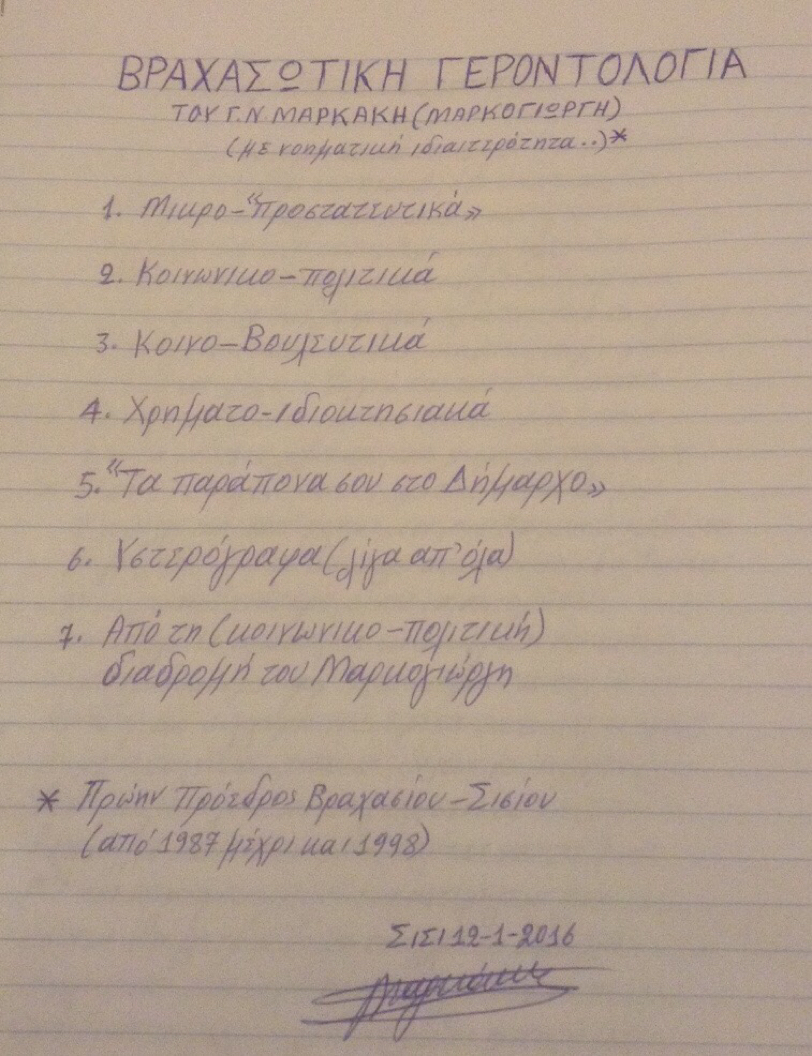 ΒΡΑΧΑΣΩΤΙΚΗ ΓΕΡΟΝΤΟΛΟΓΙΑ
ΤΟΥ Γ.Ν ΜΑΡΚΑΚΗ (ΜΑΡΚΟΓΙΩΡΓΗ)
(με νοηματική ιδιαιτερότητα..)*
1. Μικρο-"προστατευτικά»
2. Κοινωνικο-πολιτικά
3. Κοινο-Βουλευτικά
4. Χρηματο-ιδιοκτησιακά
5. "Τα παράπονα σου στο Δήμαρχο»
6. Υστερόγραφα (λίγα απ' όλα)
7. Από τη (κοινωνικο-πολιτική)
διαδρομή του Μαρκογιώργη
* Πρώην Πρόεδρος Βραχασίου-Σισίου
(από 1987 μέχρι και 1998)
ΣΙΣΙ 12-1-2016
Μαρκάκης